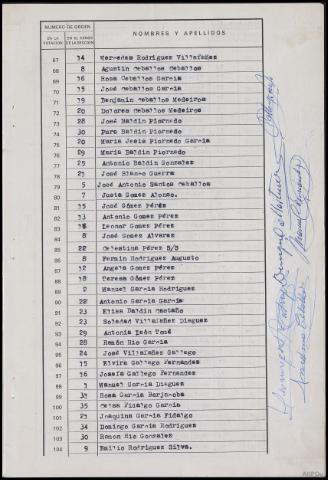 NUMERO DE ORDEN
EN LA VOTACION EN EL CENSO DE LA SECCION NOMBRES Y APELLIDOS
67 34 Mercedes Rodriguez Villafañez
68 8 Agustin Ceballos Ceballos
69 16 Rosa Ceballos Garcia
70 15 José Ceballos Garcia
71 19 Benjamin Ceballos Medeiros
72 20 Dolores Ceballos Medeiros
73 28 José Baldin Piornedo
74 30 Pura Baldin Piornedo
75 20 Maria Jesús Piornedo Garcia
76 29 Maria Baldin Piornedo
77 25 Antonio Baldin Gonzalez
78 21 José Blanco Guerra
79 5 José Antonio Santos Ceballos
80 7 Justa Gomez Alonso.
81 15 José Gómez Pérez
82 13 Antonio Gomez Pérez
83 18 Leonor Gomez Pérez
84 8 José Gomez Alvarez
85 22 Celestina Pérez S/S
86 8 Fermin Rodriguez Augusto
87 12 Angelo Gomez Pérez
88 18 Teresa Gómez Pérez
89 2 Manuel Garcia Rodriguez
90 22 Antonio Garcia Garcia
91 23 Elisa Baldin Castaño
92 23 Soledad Villafañez Dieguez
93 29 Antonia León Tomé
94 28 Ramón Rio Garcia
95 24 José Villafañez Gallego
96 15 Elvira Gallego Fernandez
97 16 Josefa Gallego Fernandez
98 3 Manuel Garcia Dieguez
99 33 Rosa Garcia Barjacoba
100 35 Celsa Fidalgo Garcia
101 25 Joaquina Garcia Fidalgo
102 34 Domingo Garcia Rodriguez
103 30 Ramon Rio Gonzalez
104 9 Emilio Rodriguez Silva.